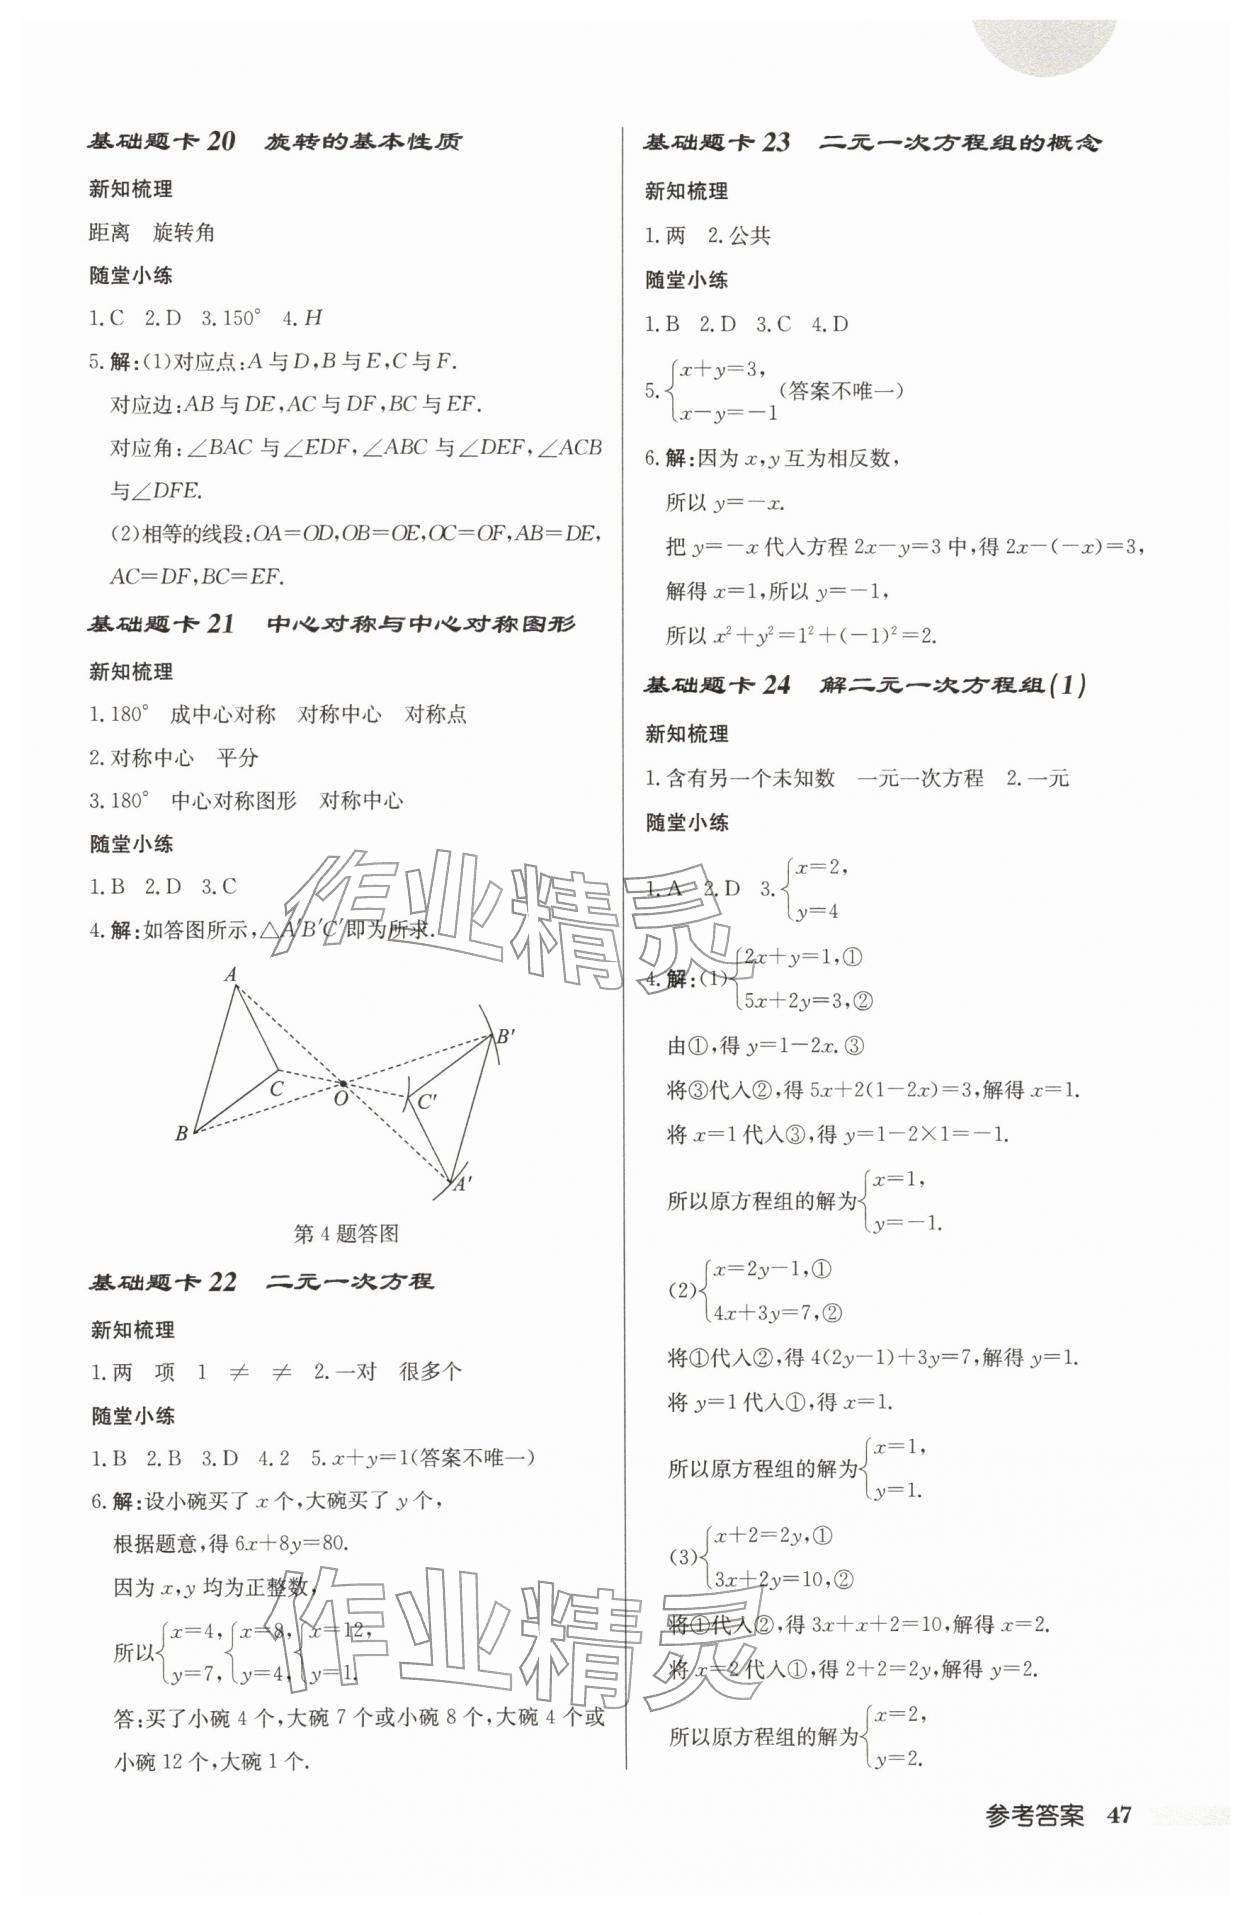 基础题卡 20 旋转的基本性质
新知梳理
距离 旋转角
随堂小练
1.C 2.D 3.150° 4.H
5.解:(1)对应点:A与D,B与E,C与F.
对应边:AB与DE,AC与DF,BC与EF.
对应角:∠BAC与∠EDF,∠ABC与∠DEF,∠ACB
与∠DFE.
(2)相等的线段:OA=OD,OB=OE,OC=OF,AB=DE,
AC=DF,BC=EF.
基础题卡 21 中心对称与中心对称图形
新知梳理
1.180° 成中心对称 对称中心 对称点
2.对称中心 平分
3.180° 中心对称图形 对称中心
随堂小练
1.B 2.D 3.C
4.解:如答图所示,△A′B′C′即为所求.
A
B′
C
O
C′
B
A′
第4题答图
基础题卡 22 二元一次方程
新知梳理
1.两 项 1 ≠ ≠ 2.一对 很多个
随堂小练
1.B 2.B 3.D 4.2 5.x+y=1(答案不唯一)
6.解:设小碗买了x个,大碗买了y个,
根据题意,得6x+8y=80.
因为x,y均为正整数,
所以{x=4, {x=8, {x=12,
y=7, y=4, y=1.
答:买了小碗4个,大碗7个或小碗8个,大碗4个或
小碗12个,大碗1个.
基础题卡 23 二元一次方程组的概念
新知梳理
1.两 2.公共
随堂小练
1.B 2.D 3.C 4.D
5.{x+y=3,
x-y=-1 (答案不唯一)
6.解:因为x,y互为相反数,
所以y=-x.
把y=-x代入方程2x-y=3中,得2x-(-x)=3,
解得x=1,所以y=-1,
所以x²+y²=1²+(-1)²=2.
基础题卡 24 解二元一次方程组(1)
新知梳理
1.含有另一个未知数 一元一次方程 2.一元
随堂小练
1.A 2.D 3.{x=2,
y=4
4.解:(1){2x+y=1,①
5x+2y=3,②
由①,得y=1-2x.③
将③代入②,得5x+2(1-2x)=3,解得x=1.
将x=1代入③,得y=1-2×1=-1.
所以原方程组的解为{x=1,
y=-1.
(2){x=2y-1,①
4x+3y=7,②
将①代入②,得4(2y-1)+3y=7,解得y=1.
将y=1代入①,得x=1.
所以原方程组的解为{x=1,
y=1.
(3){x+2=2y,①
3x+2y=10,②
将①代入②,得3x+x+2=10,解得x=2.
将x=2代入①,得2+2=2y,解得y=2.
所以原方程组的解为{x=2,
y=2.
作业精灵
作业精灵
参考答案 47